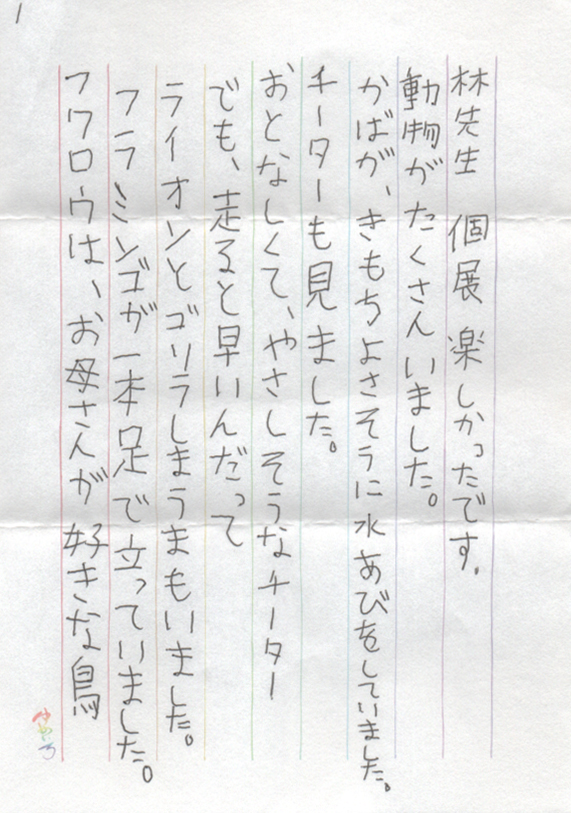 1
林先生 個展 楽しかったです。
動物がたくさんいました。
かばが、きもちよさそうに水あびをしていました。
チーターも見ました。
おとなしくて、やさしそうなチーター
でも、走ると早いんだって
ライオンとゴリラしまうまもいました。
フラミンゴが一本足で立っていました。
フワロウは、お母さんが好きな鳥